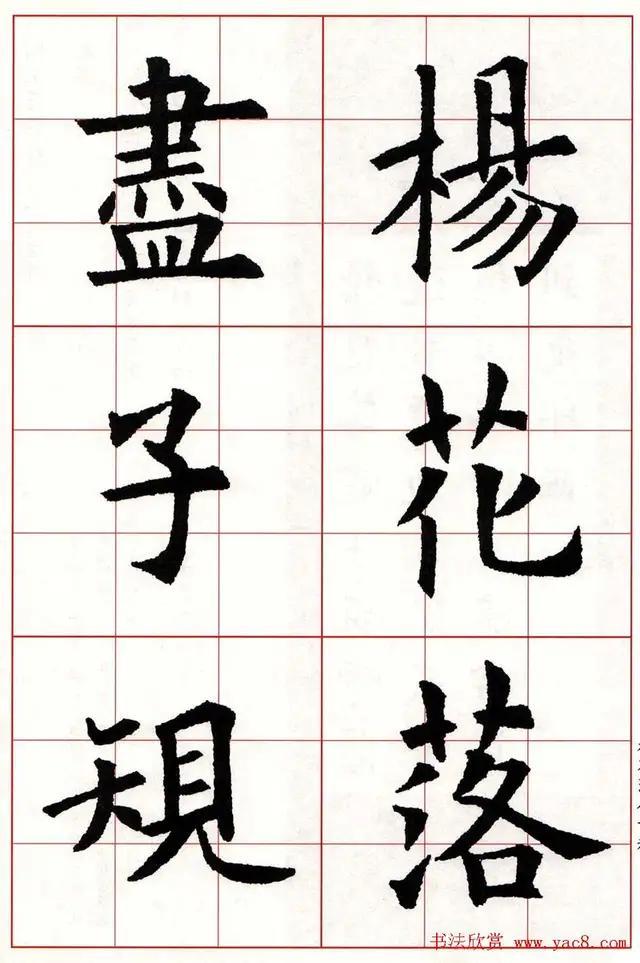 楊花落
盡子規
书法欣赏 www.yac8.com